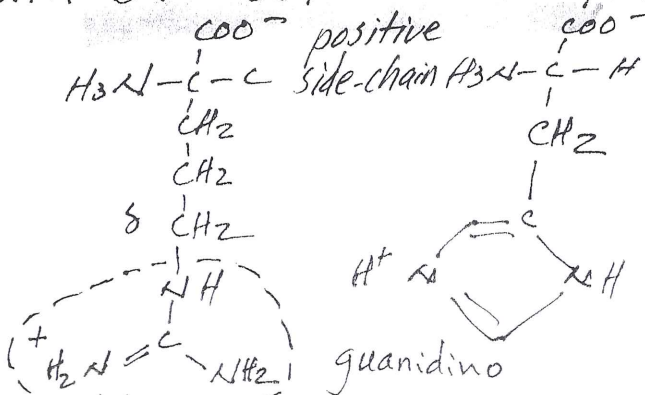 COO⁻ positive COO⁻
H3N-C-C side-chain H3N-C-H
CH2 CH2
CH2
δ CH2 C
NH H⁺ N NH
+ H2N=C
NH2 guanidino